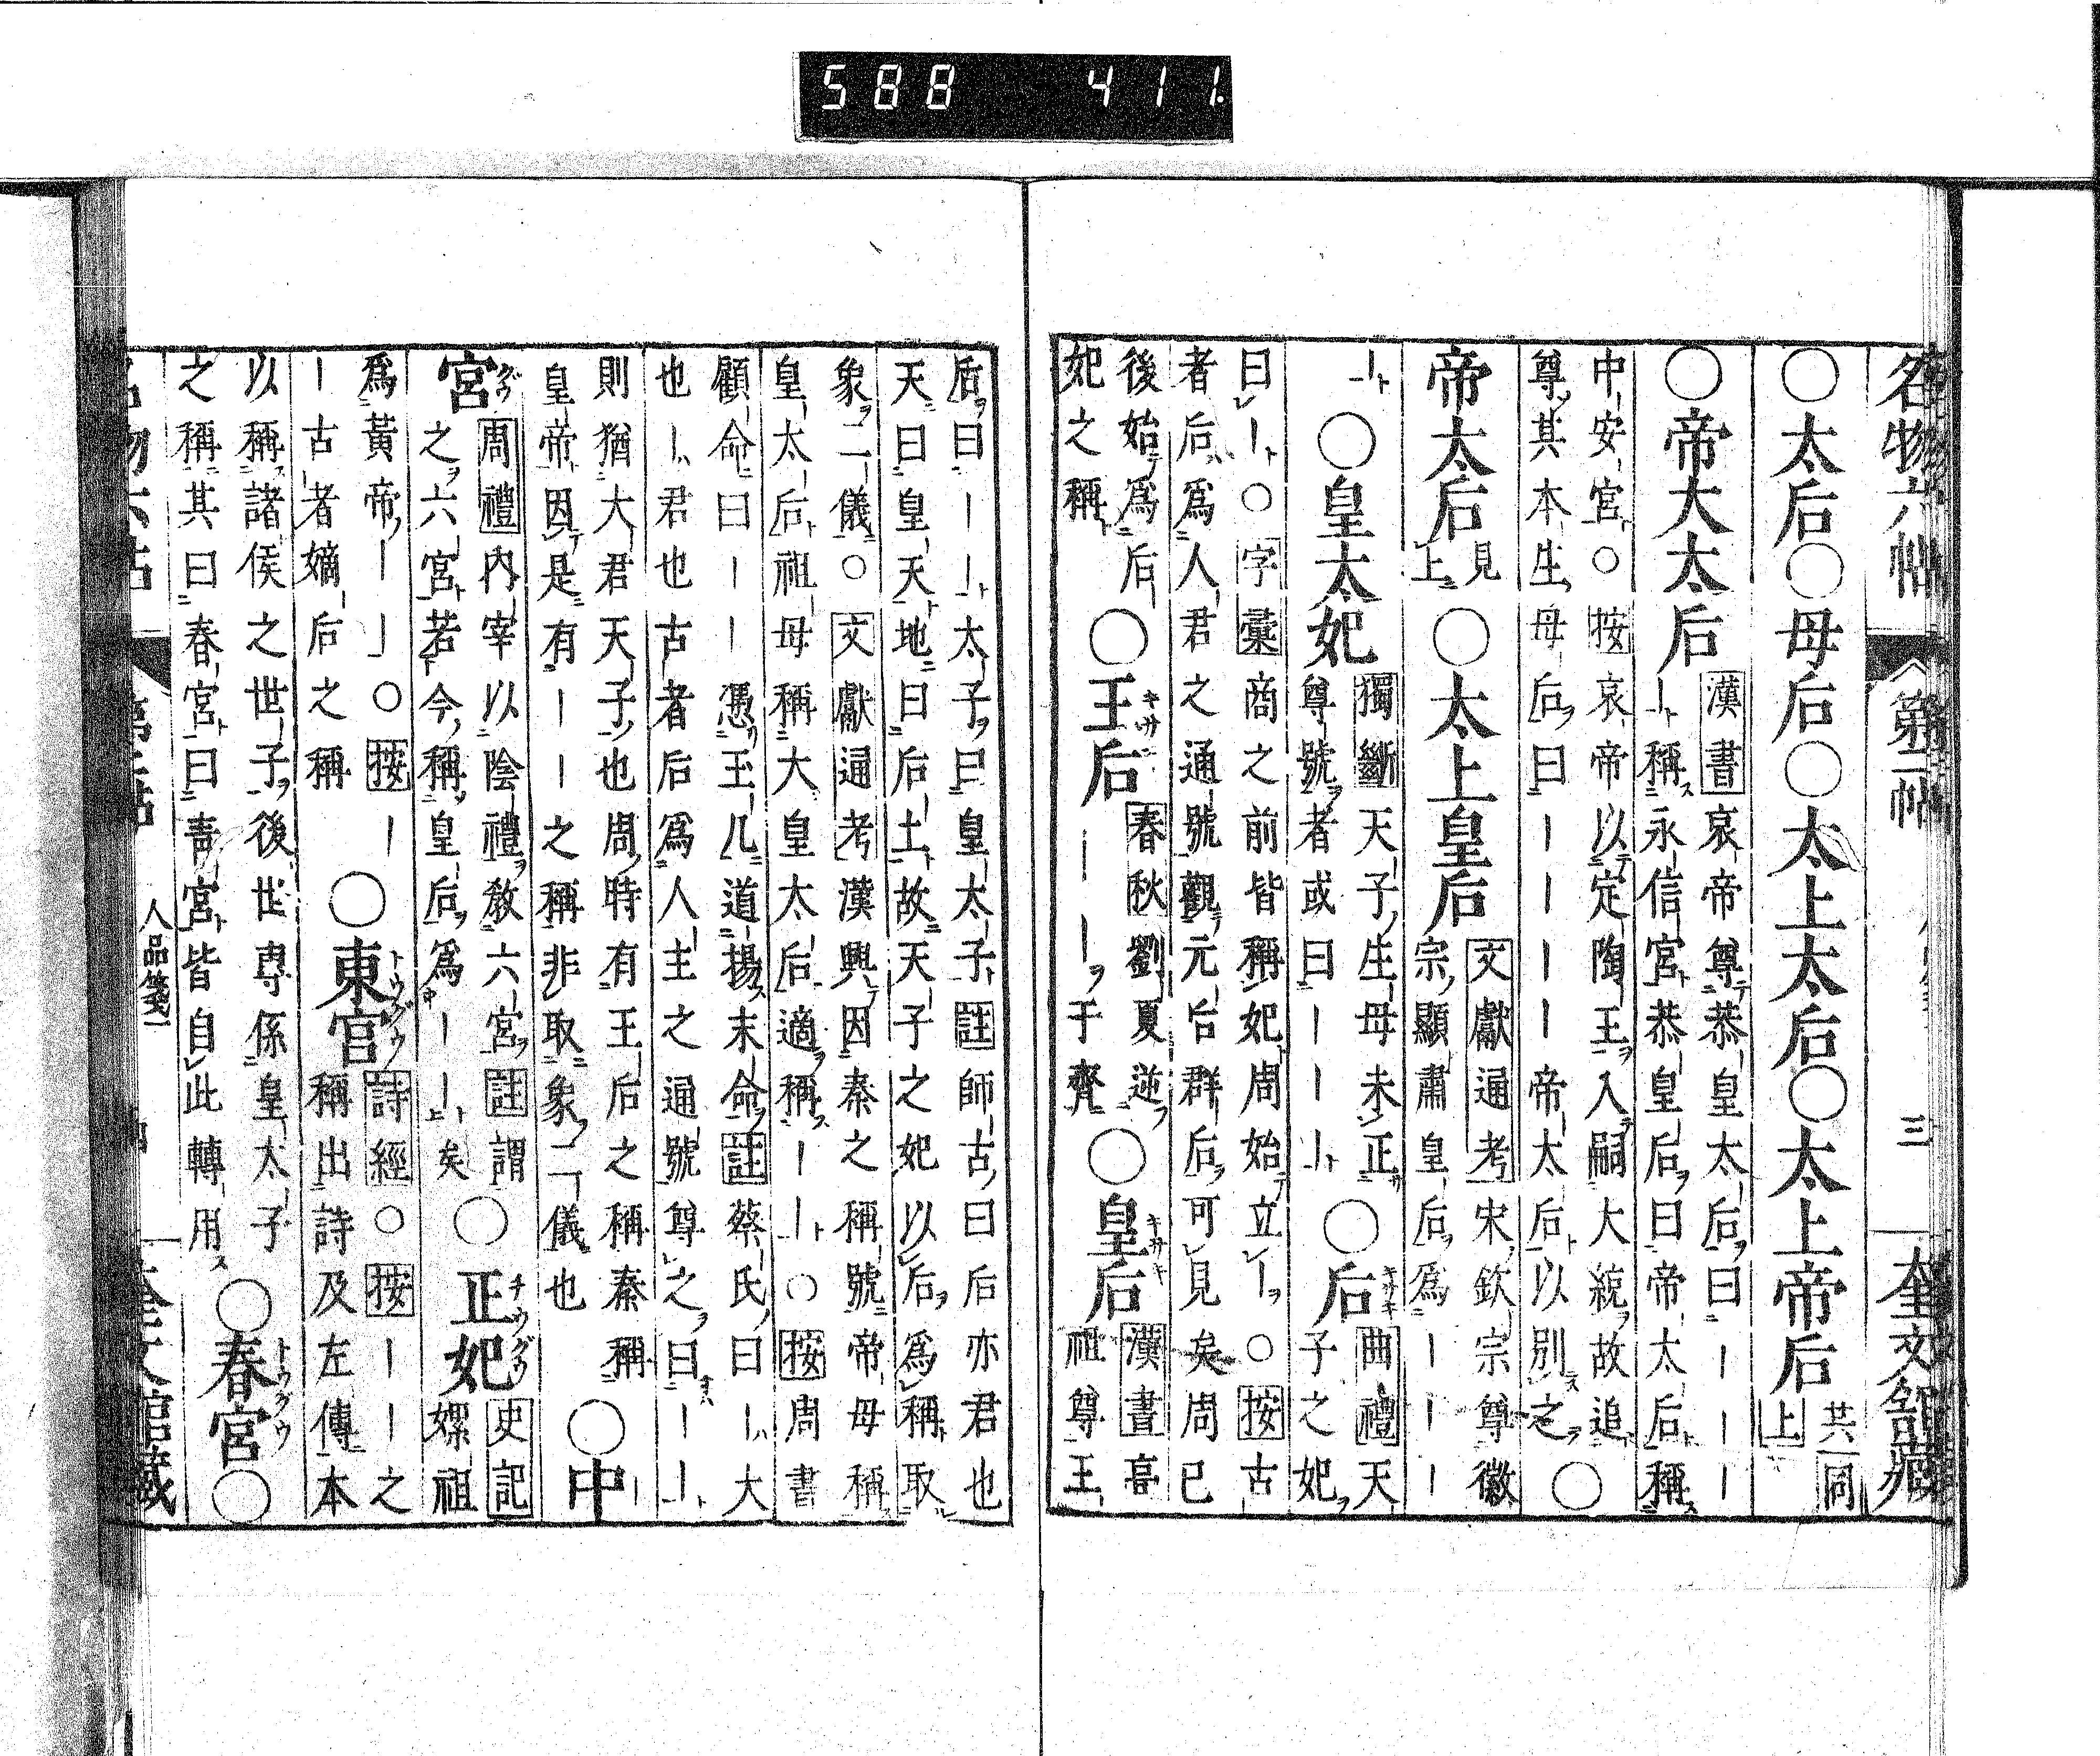 名物六帖 第二帖 三 奎文舘藏
○太后○母后○太上太后○太上帝后 共同
上
○帝大太后 漢書哀帝尊恭皇太后曰丨丨丨
丨稱永信宮恭皇后曰帝太后稱
中安宮○按哀帝以定陶王入嗣大統故追
尊其本生母后曰丨丨丨丨帝太后以別之○
帝太后 見
上 ○太上皇后 文獻通考宋欽宗尊徽
宗顯肅皇后爲丨丨丨
丨○皇太妃 獨斷天子生母未正
尊號者或曰丨丨丨 ○后 曲禮天
子之妃
曰丨○字彙商之前皆稱妃周始立丨○按古
者后爲人君之通號觀元后群后可見矣周已
後始爲后
妃之稱 ○王后 キサキ 春秋劉夏逆
丨丨于齊 ○皇后 キサキ 漢書高
祖尊王
后曰丨丨太子曰皇太子註師古曰后亦君也
天曰皇天地曰后土故天子之妃以后爲稱取
象二儀○文獻通考漢興因秦之稱號帝母稱
皇太后祖母稱大皇太后適稱丨丨○按周書
顧命曰丨丨憑玉几道揚末命註蔡氏曰丨大
也丨君也古者后爲人主之通號尊之曰丨丨
則猶大君天子也周時有王后之稱秦稱
皇帝因是有丨丨之稱非取象二儀也 ○中
宮 周禮內宰以陰禮教六宮註謂
之六宮若今稱皇后爲丨丨矣 ○正妃 チウグウ 史記
嫘祖
爲黃帝丨丨○按丨
丨古者嫡后之稱 ○東宮 トウグウ 詩經○按丨丨之
稱出詩及左傳本
以稱諸侯之世子後世專係皇太子
之稱其曰春宮曰靑宮皆自此轉用 ○春宮 トウグウ ○
人品箋一
588 411